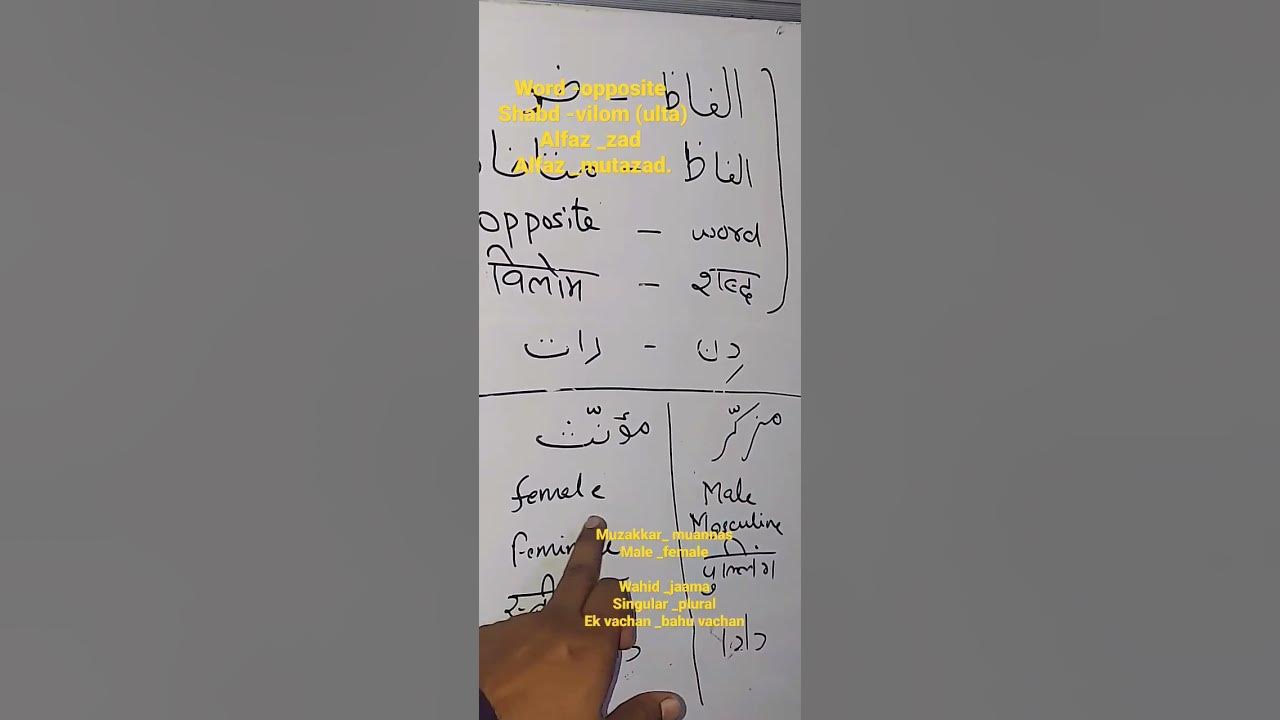 Word -opposite
Shabd -vilom (ulta)
Alfaz _zad
Alfaz _mutazad.
الفاظ -
الفاظ -
opposite - word
विलोम - शब्द
دِن - رات
مزکّر مؤنّث
female Male
Masculine
पुल्लिंग
دادا
Muzakkar_ muannas
Male _female
Wahid _jaama
Singular _plural
Ek vachan _bahu vachan